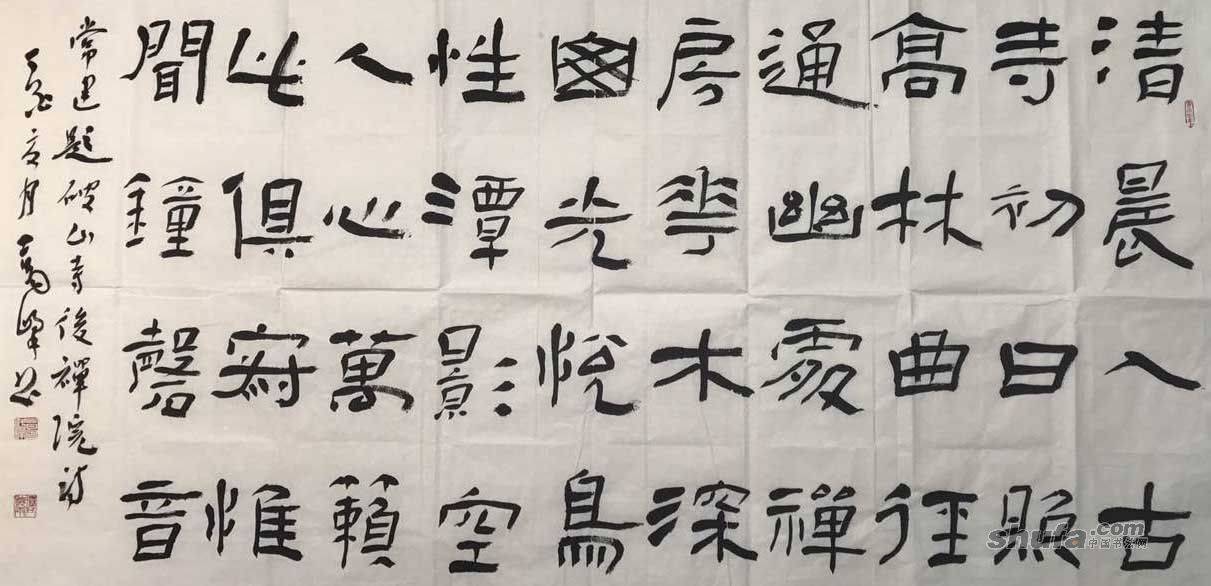 清晨入古
寺初日照
高林曲徑
通幽處禪
房花木深
山光悦鳥
性潭影空
人心萬籟
此俱寂惟
聞鐘磬音
常建題破山寺後禪院詩
月 峰書
shufa.com
中国书法网